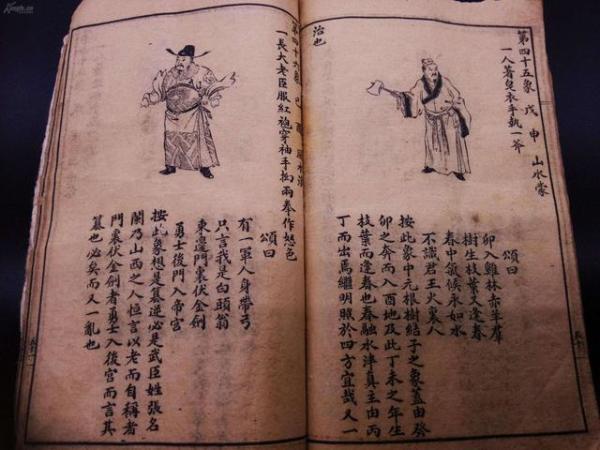 第四十五象 戊申 山水蒙
一人著皂衣手執一斧
頌曰
卯入雞林赤羊群
樹生枝葉又逢春
春中氣候永如水
不識君王火裏人
按此象中元根樹結子之象蓋由癸
卯之奔而入酉地及此丁未之年生
枝葉而逢春也春融水泮真主由丙
丁而出焉繼明照於四方宜哉又一
治也
第四十六象 己酉
一長大老臣服紅袍穿袖手拘兩拳作怒色
頌曰
有一軍人身帶弓
只言我是白頭翁
東邊門裏伏金劍
勇士後門入帝宮
按此象想是篡逆必是武臣姓張名
闌乃山西之人恒言以老而自稱者
門裏伏金劍者勇士入後宮而言其
篡也必矣而又一亂也